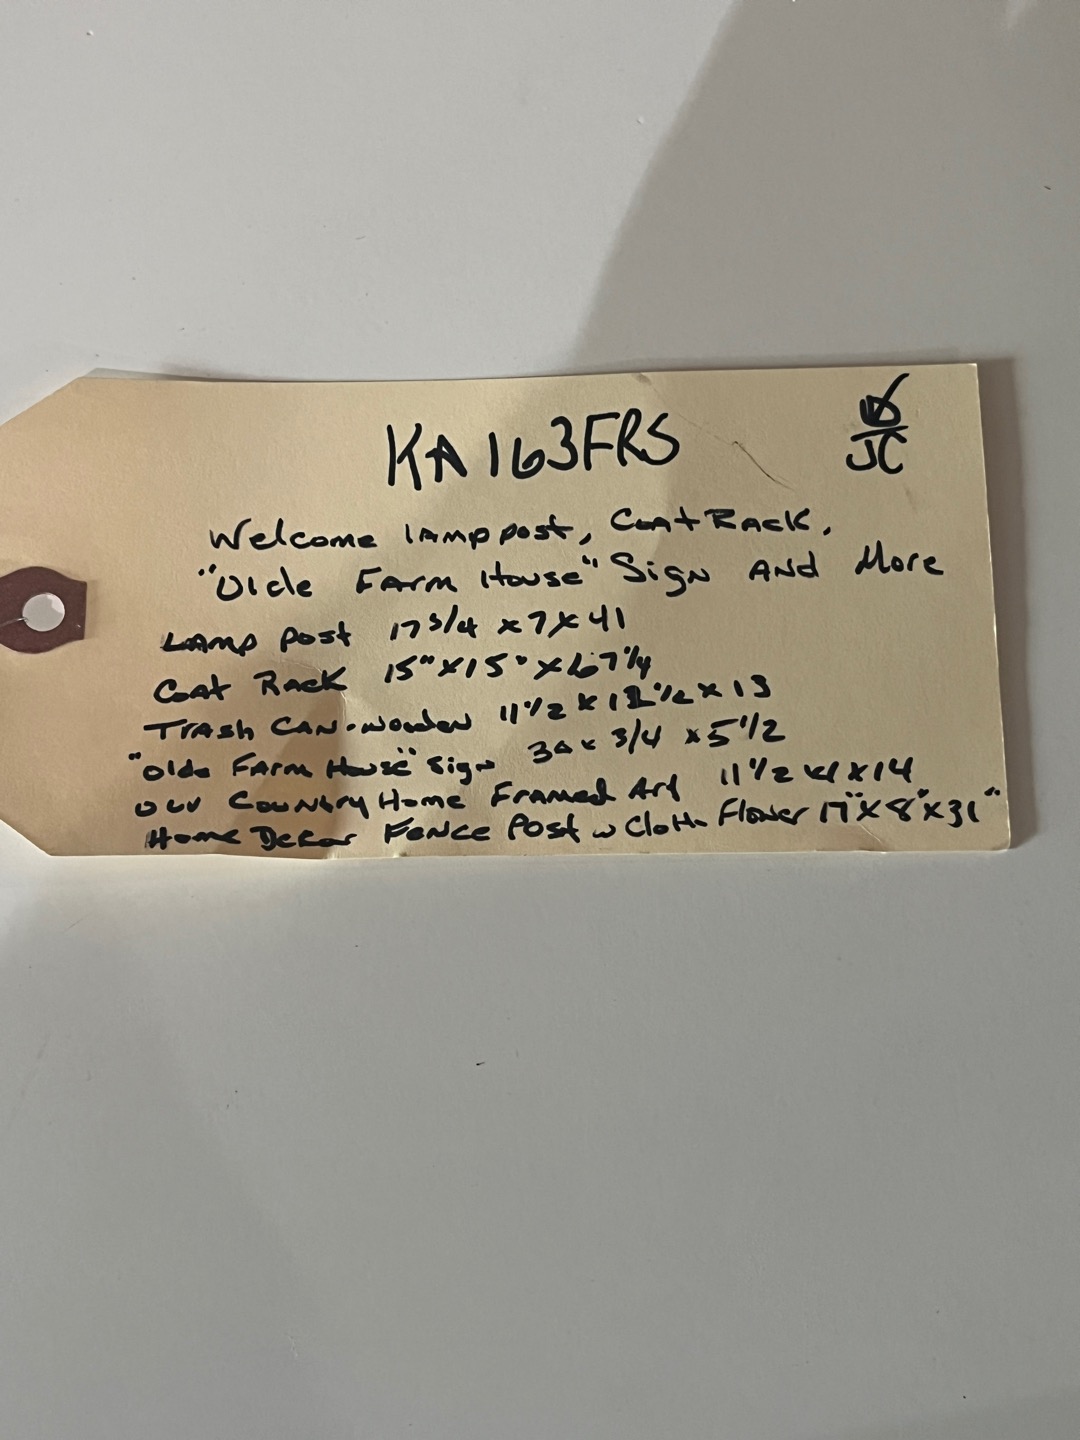 KA163FRS
JC
Welcome lamp post, Coat Rack,
"Olde Farm House" Sign AND More
Lamp post 17 3/4 x 7 x 41
Coat Rack 15" x 15" x 67 1/4
Trash CAN-wooden 11 1/2 x 12 1/2 x 13
"Olde Farm House" Sign x 3/4 x 5 1/2
our Country Home Framed Art 11 1/2 x 1 x 14
Home Decor Fence Post w Cloth Flower 17" x 8" x 31"